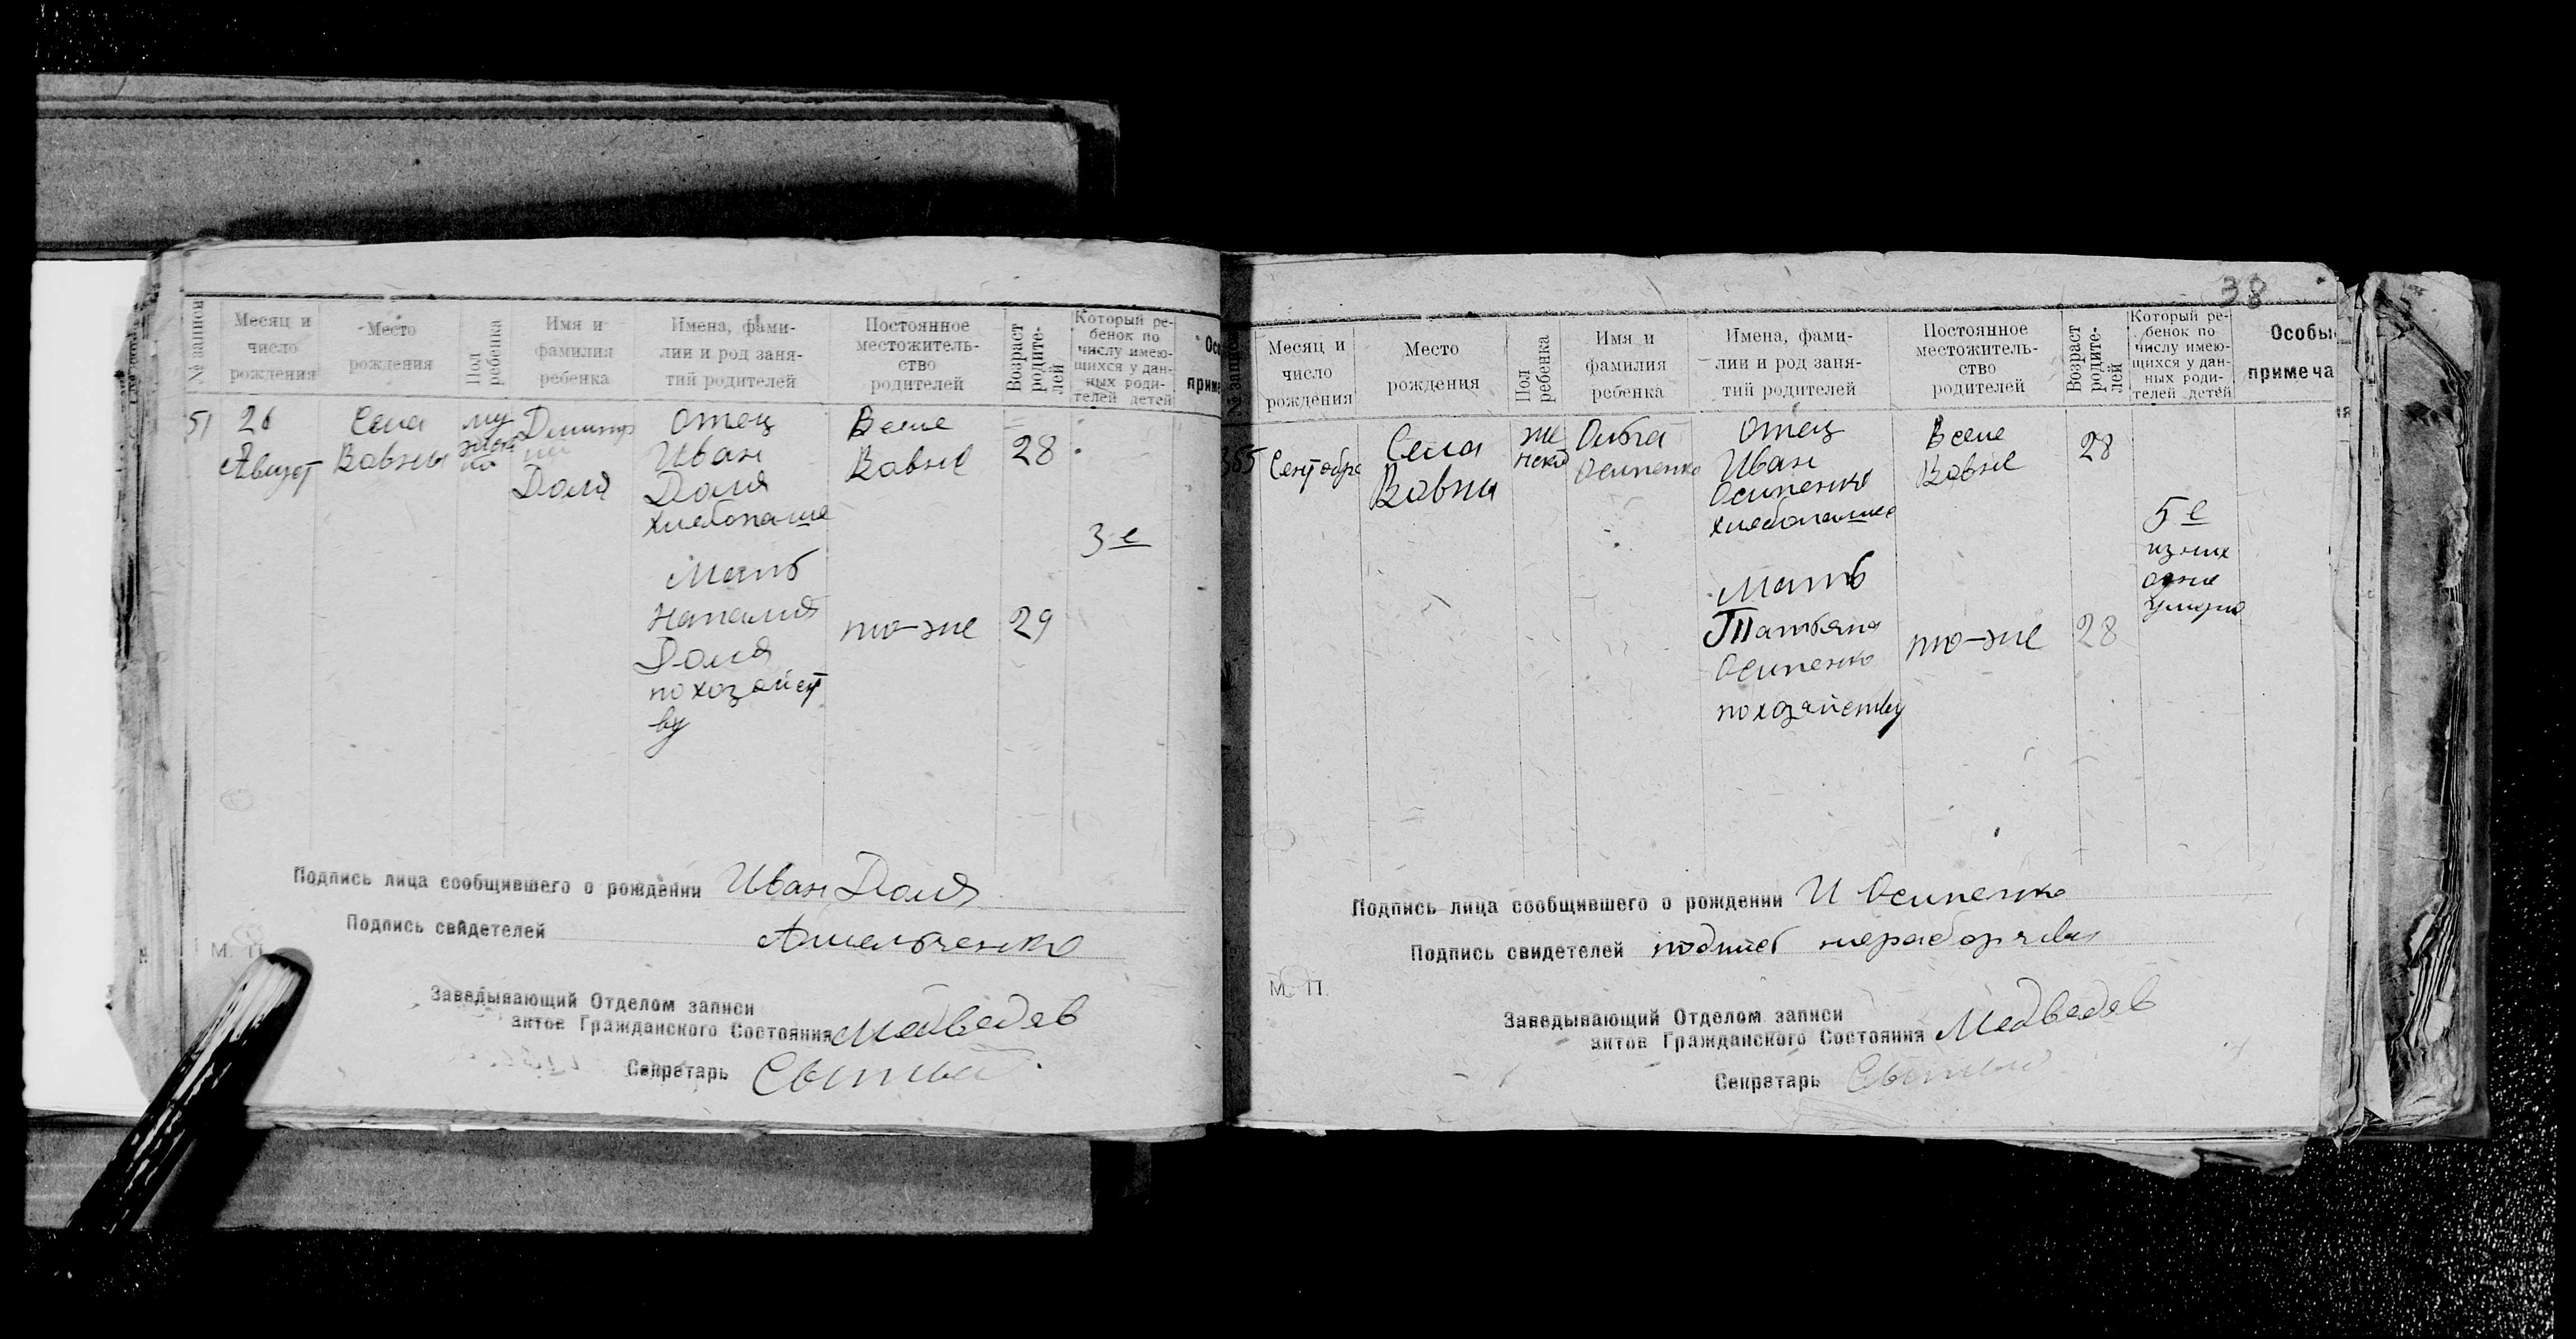 № записи
Месяц и
число
рождения
Место
рождения
Пол
ребенка
Имя и
фамилия
ребенка
Имена, фами-
лии и род заня-
тий родителей
Постоянное
местожитель-
ство
родителей
Возраст
родите-
лей
Который ре-
бенок по
числу имею-
щихся у дан-
ных роди-
телей детей
Осо
приме
51
26
Август
Села
Вовны
му
жеск
Доля
Отец
Иван
Доля
хлебопаше
Мать
Наталия
Доля
по хозяйст
ву
В селе
Вовне
то-же
28
29
3-е
Подпись лица сообщившего о рождении Иван Доля
Подпись свидетелей Амельченко
М. П.
Заведывающий Отделом записи
актов Гражданского Состояния Медведев
Секретарь
38
№ записи
Месяц и
число
рождения
Место
рождения
Пол
ребенка
Имя и
фамилия
ребенка
Имена, фами-
лии и род заня-
тий родителей
Постоянное
местожитель-
ство
родителей
Возраст
родите-
лей
Который ре-
бенок по
числу имею-
щихся у дан-
ных роди-
телей детей
Особы
примеча
55
Сентября
Села
Вовны
же
нской
Осипенко
Отец
Иван
Осипенко
хлебопашец
Мать
Татьяна
Осипенко
по хозяйству
В селе
Вовне
то-же
28
28
5 е
из них
одно
умерло
Подпись лица сообщившего о рождении И Осипенко
Подпись свидетелей подпись неразборчива
М. П.
Заведывающий Отделом записи
актов Гражданского Состояния Медведев
Секретарь